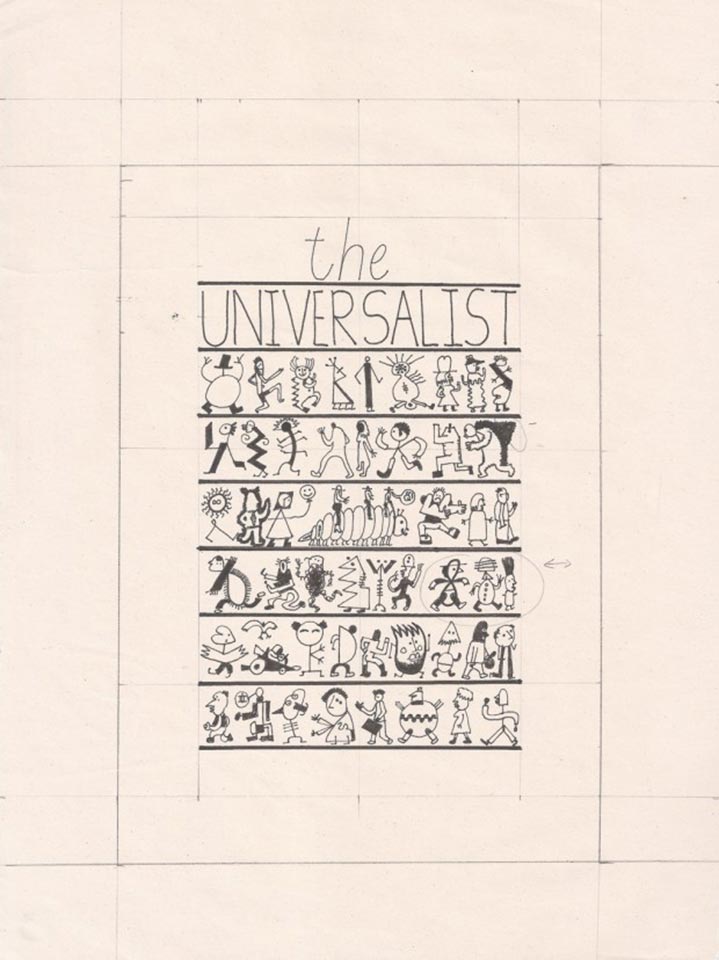 the
UNIVERSALIST